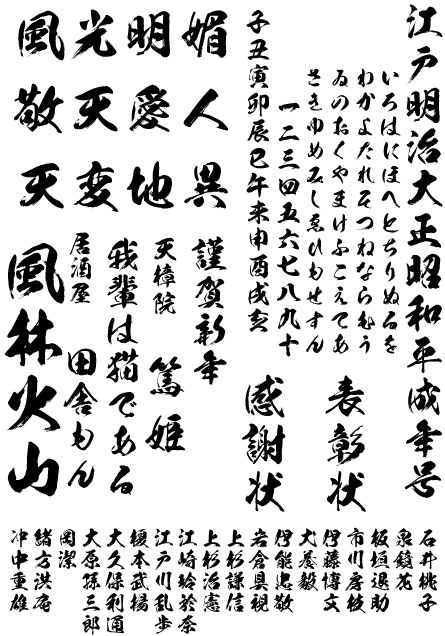 江戸明治大正昭和平成年号
いろはにほへとちりぬるを
わかよたれそつねならむう
ゐのおくやまけふこえてあ
さきゆめみしゑひもせすん
一二三四五六七八九十
子丑寅卯辰巳午未申酉戌亥
表彰状
感謝状
媚人異
明愛地
光天変
風敬天
謹賀新年
天樟院
篤姫
我輩は猫である
居酒屋
田舎もん
風林火山
石井桃子
泉鏡花
板垣退助
市川房枝
伊藤博文
犬養毅
伊能忠敬
岩倉具視
上杉謙信
上杉治憲
江崎玲於奈
江戸川乱歩
榎本武揚
大久保利通
大原孫三郎
岡潔
緒方洪庵
沖中重雄